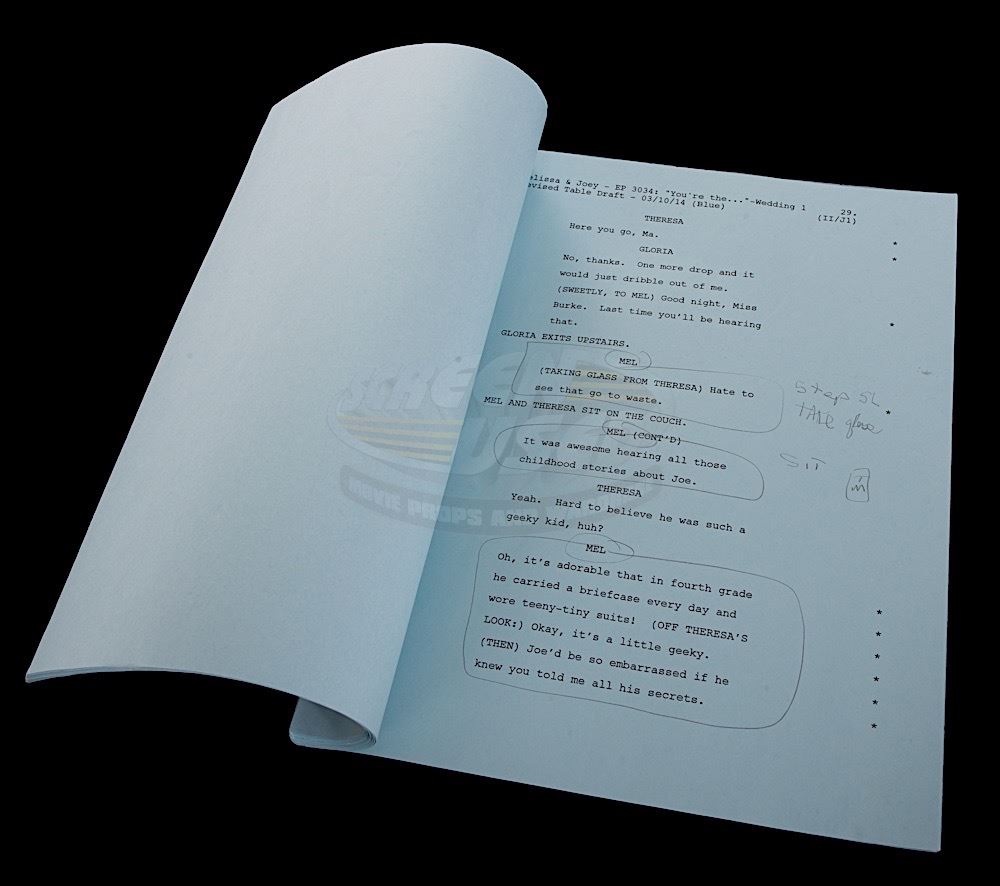 elissa & Joey - EP 3034: "You're the..."-Wedding 1 29.
evised Table Draft - 03/10/14 (Blue) (II/J1)
THERESA
Here you go, Ma. *
GLORIA *
No, thanks. One more drop and it
would just dribble out of me.
(SWEETLY, TO MEL) Good night, Miss
Burke. Last time you'll be hearing *
that.
GLORIA EXITS UPSTAIRS.
MEL
(TAKING GLASS FROM THERESA) Hate to
see that go to waste. *
Step SL
TAKE glass
MEL AND THERESA SIT ON THE COUCH.
SIT
MEL (CONT'D)
It was awesome hearing all those
childhood stories about Joe.
THERESA
Yeah. Hard to believe he was such a
geeky kid, huh?
MEL
Oh, it's adorable that in fourth grade *
he carried a briefcase every day and *
wore teeny-tiny suits! (OFF THERESA'S *
LOOK:) Okay, it's a little geeky. *
(THEN) Joe'd be so embarrassed if he *
knew you told me all his secrets. *
SCREEN USED
MOVIE PROPS AND